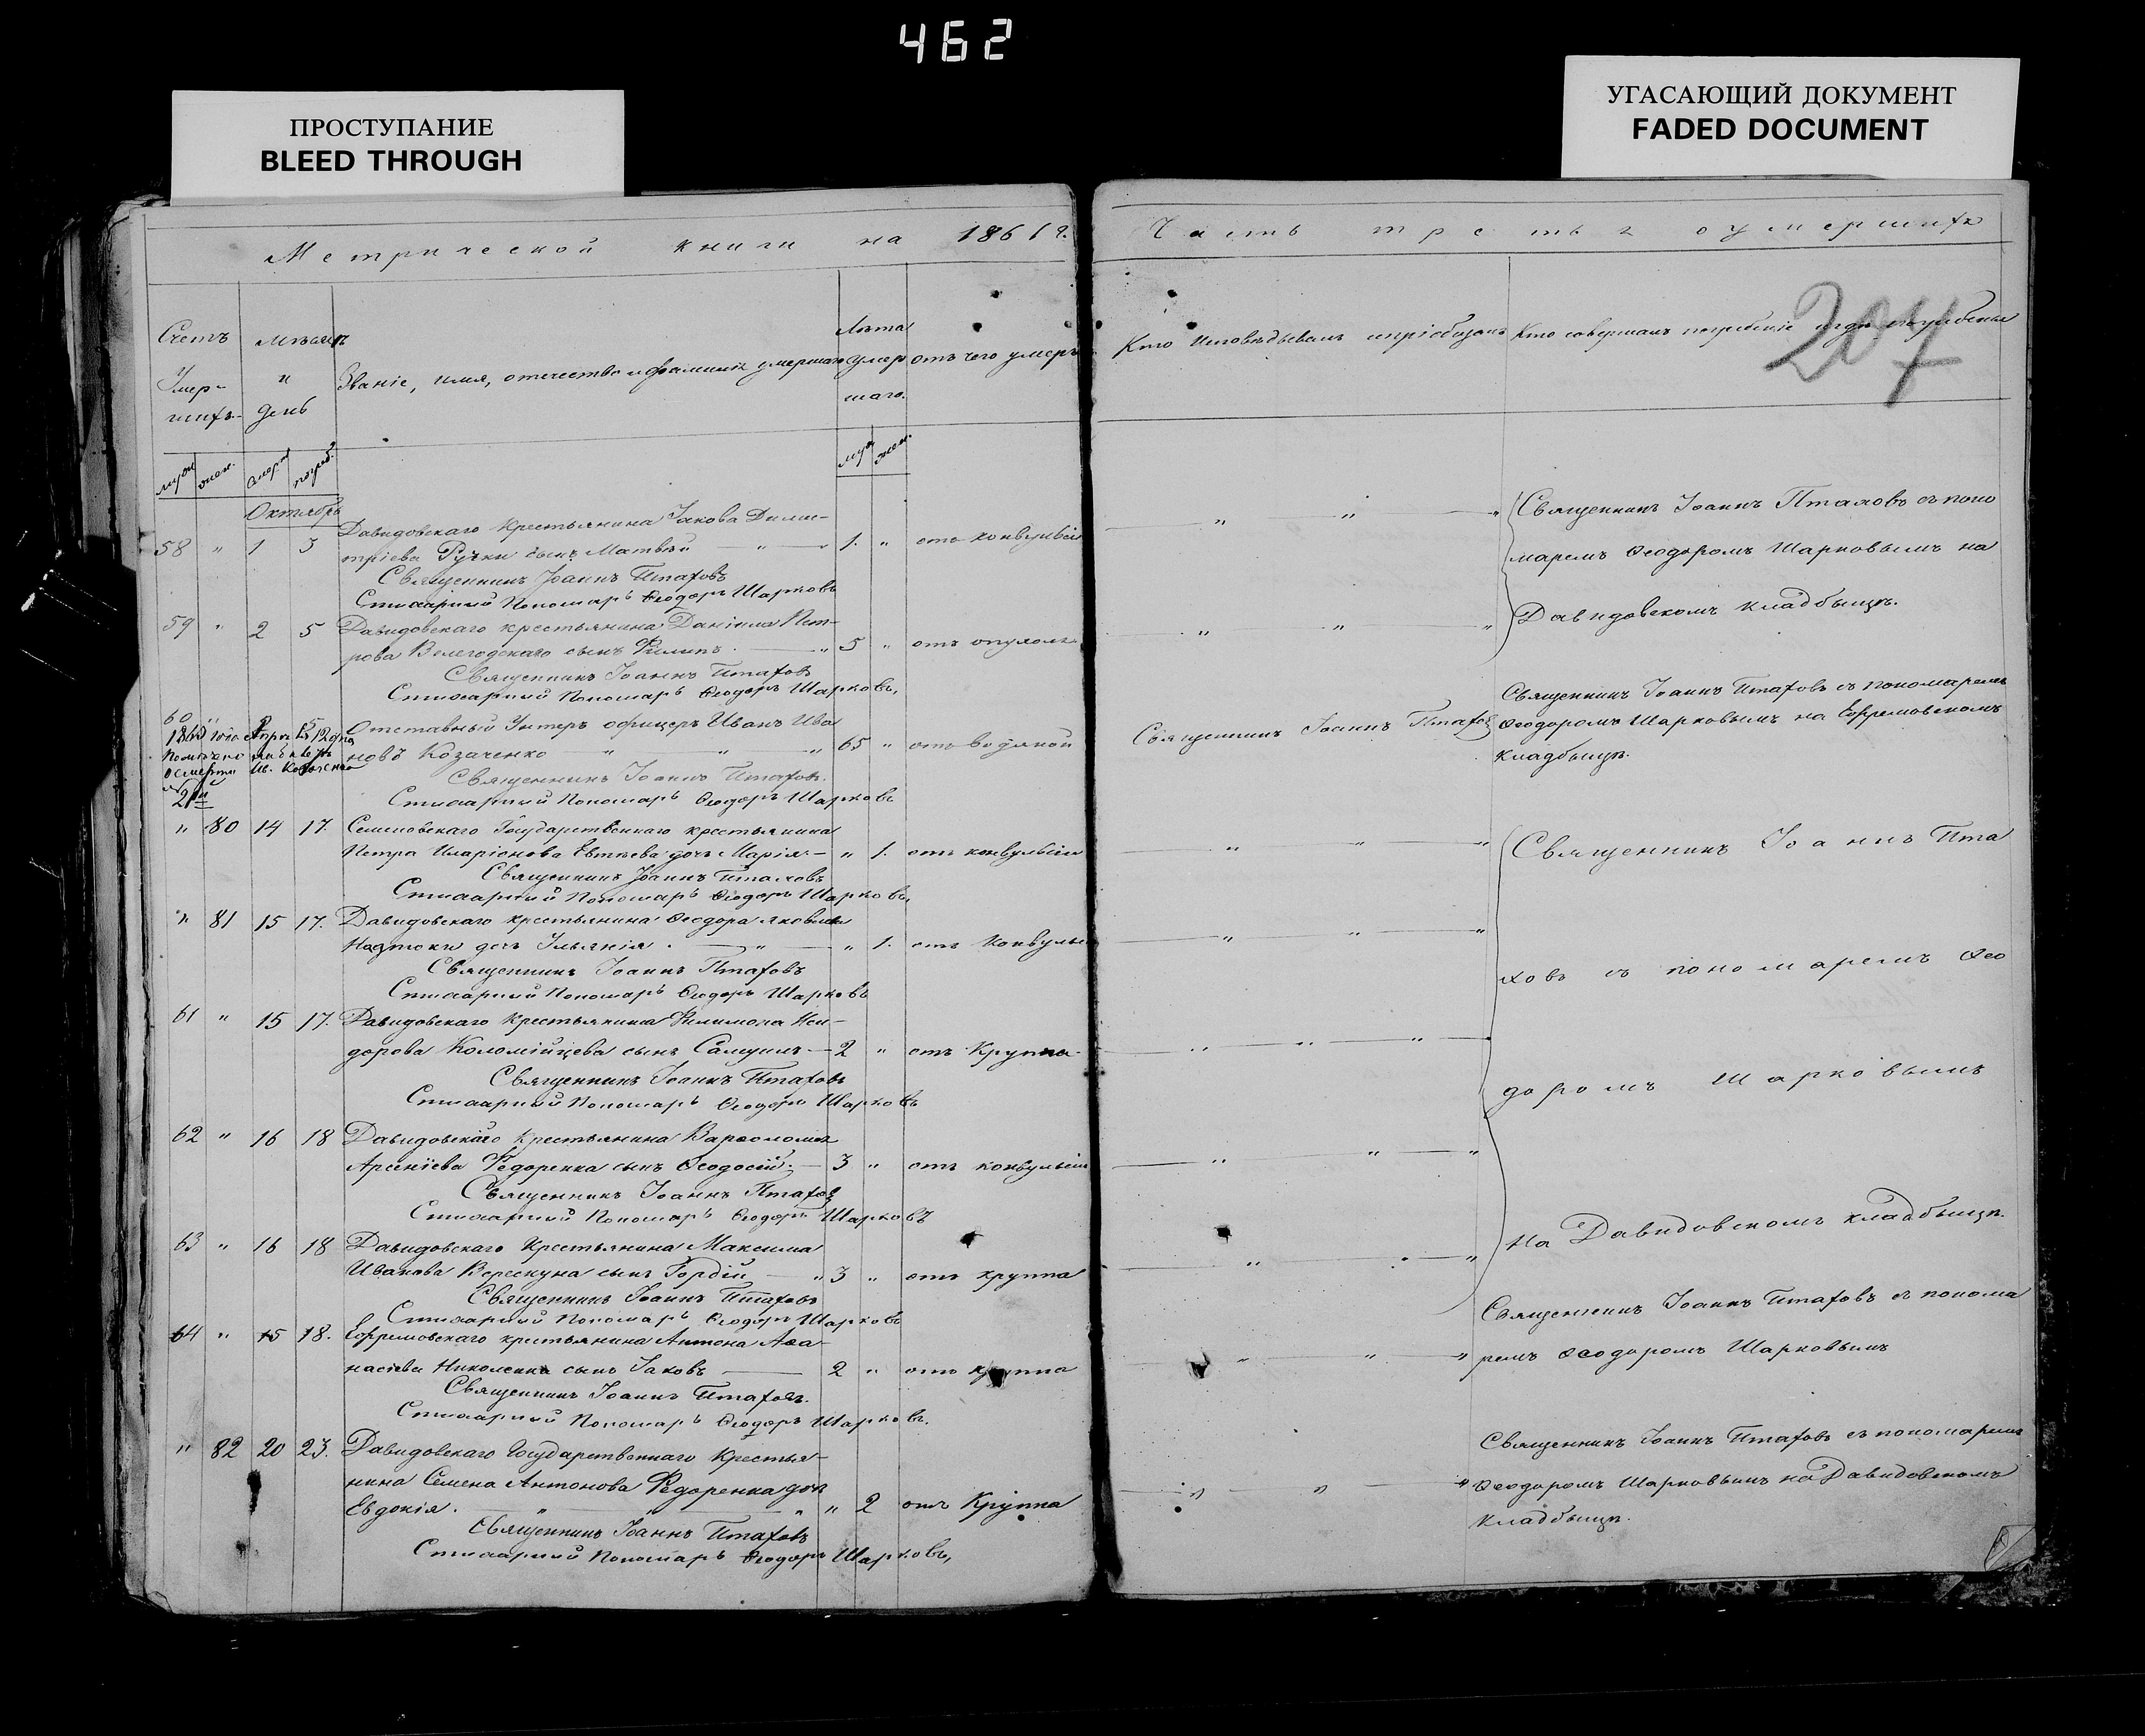 462
ПРОСТУПАНИЕ
BLEED THROUGH
УГАСАЮЩИЙ ДОКУМЕНТ
FADED DOCUMENT
Метрической книги на 1861 г.
Счетъ
Умер-
шихъ.
Мѣсяцъ
и
день
Званіе, имя, отечество и фамилія умершаго
Лѣта
умер
шаго.
отъ чего умеръ
муж
жен.
смерт
погреб.
муж
жен.
Октябрь
58 " 1 3 Давидовскаго Крестьянина Іакова Дими-
тріева Ручки сынъ Матвѣй — " — 1. " отъ конвульсіи
Священникъ Іоаннъ Птаховъ
Стихарный Пономарь Ѳеодоръ Шарковъ
59 " 2 5 Давидовскаго крестьянина Даніила Пет-
рова Вележодскаго сынъ Филипъ. — " 5 " отъ опухоли
Священникъ Іоаннъ Птаховъ
Стихарный Пономарь Ѳеодоръ Шарковъ,
60 " 2 5 Отставный Унтеръ офицеръ Иванъ Ива
новъ Козаченко — " — " — " 65 " отъ водяной
12 дня
о смерти Ив. Козаченко
Священникъ Іоаннъ Птаховъ.
Стихарный Пономарь Ѳеодоръ Шарковъ
" 80 14 17. Семеновскаго Государственнаго крестьянина
Петра Иларіонова Евтѣева дочь Марія — " 1. отъ конвульсіи
Священникъ Іоаннъ Птаховъ
Стихарный Пономарь Ѳеодоръ Шарковъ,
" 81 15 17. Давидовскаго крестьянина Ѳеодора Яковлева
Надточи дочь Ульянія. — " — " 1. отъ Конвульсіи
Священникъ Іоаннъ Птаховъ
Стихарный Пономарь Ѳеодоръ Шарковъ
61 " 15 17. Давидовскаго Крестьянина Филимона Иси-
дорова Коломійцева сынъ Самуилъ — 2 " отъ Круппа
Священникъ Іоаннъ Птаховъ
Стихарный Пономарь Ѳеодоръ Шарковъ
62 " 16 18 Давидовскаго Крестьянина Варѳоломея
Арсеніева Ѳедоренка сынъ Ѳеодосій. — 3 " отъ конвульсіи
Священникъ Іоаннъ Птаховъ
Стихарный Пономарь Ѳеодоръ Шарковъ
63 " 16 18 Давидовскаго Крестьянина Максима
Иванова Верескуна сынъ Гордій — " 3 " отъ круппа
Священникъ Іоаннъ Птаховъ
Стихарный Пономарь Ѳеодоръ Шарковъ
64 " 15 18. Ефремовскаго крестьянина Антона Аѳа-
насіева Николенка сынъ Іаковъ — 2 " отъ круппа
Священникъ Іоаннъ Птаховъ.
Стихарный Пономарь Ѳеодоръ Шарковъ.
" 82 20 23. Давидовскаго Государственнаго Крестья-
нина Семена Антонова Ѳедоренка дочь
Евдокія. — " — " " 2 отъ Круппа
Священникъ Іоаннъ Птаховъ
Стихарный Пономарь Ѳеодоръ Шарковъ,
Часть третья о умершихъ
207
Кто Исповѣдывалъ и пріобщалъ
Кто совершалъ погребеніе и гдѣ погребены
Священникъ Іоаннъ Птаховъ съ поно
маремъ Ѳеодоромъ Шарковымъ на
Давидовскомъ кладбыщѣ.
Священникъ Іоаннъ Птаховъ
Священникъ Іоаннъ Птаховъ съ пономаремъ
Ѳеодоромъ Шарковымъ на Ефремовскомъ
кладбыщѣ.
Священникъ Іоаннъ Пта
ховъ съ пономаремъ Ѳео
доромъ Шарковымъ
на Давидовскомъ кладбыщѣ.
Священникъ Іоаннъ Птаховъ съ понома
ремъ Ѳеодоромъ Шарковымъ
Священникъ Іоаннъ Птаховъ съ пономаремъ
Ѳеодоромъ Шарковымъ на Давидовскомъ
Кладбыщѣ.